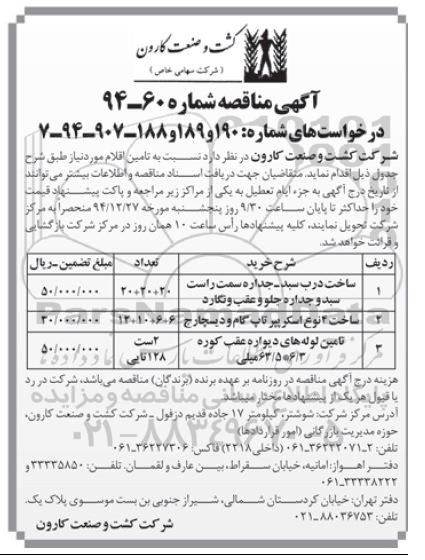 کشت و صنعت کارون
( شرکت سهامی خاص )
آگهی مناقصه شماره ۶۰-۹۴
درخواست‌های شماره: ۱۹۰و۱۸۹و۱۸۸-۹۰۷-۹۴-۷
شرکت کشت و صنعت کارون در نظر دارد نسبت به تامین اقلام موردنیاز طبق شرح
جدول ذیل اقدام نماید. متقاضیان جهت دریافت اسناد مناقصه و اطلاعات بیشتر می‌توانند
از تاریخ درج آگهی به جزء ایام تعطیل به یکی از مراکز زیر مراجعه و پاکت پیشنهاد قیمت
خود را حداکثر تا پایان ساعت ۹/۳۰ روز پنجشنبه مورخه ۹۴/۱۲/۲۷ منحصراً به مرکز
شرکت تحویل نمایند، کلیه پیشنهادها رأس ساعت ۱۰ همان روز در مرکز شرکت بازگشایی
و قرائت خواهد شد.
ردیف شرح خرید تعداد مبلغ تضمین-ریال
۱ ساخت درب سبد-جداره سمت راست سبد و جداره جلو و عقب و نگارد ۲۰+۲۰+۲۰ ۵۰/۰۰۰/۰۰۰
۲ ساخت ۴ نوع اسکرپیر تاپ گام و دیسچارج ۶+۶+۱۰+۱۲ ۳۰/۰۰۰/۰۰۰
۳ تامین لوله‌های دیواره عقب کوره ۶/۳*۶۳/۵میلی ۲ست ۱۲۸تایی ۵۰/۰۰۰/۰۰۰
هزینه درج آگهی مناقصه در روزنامه بر عهده برنده (برندگان) مناقصه می‌باشد، شرکت در رد
یا قبول هر یک از پیشنهادها مختار میباشد.
آدرس مرکز شرکت: شوشتر، کیلومتر ۱۷ جاده قدیم دزفول-شرکت کشت و صنعت کارون،
حوزه مدیریت بازرگانی (امور قراردادها)
تلفن: ۲-۳۶۲۲۲۰۷۱-۰۶۱ (داخلی۲۲۱۸) فاکس: ۳۶۲۲۷۳۰۶-۰۶۱
دفتر اهواز: امانیه، خیابان سقراط، بین عارف و لقمان. تلفن: ۳۳۳۳۵۸۵۰و
۳۳۳۳۸۲۲۲-۰۶۱
دفتر تهران: خیابان کردستان شمالی، شیراز جنوبی بن بست موسوی پلاک یک.
تلفن: ۸۸۰۳۶۷۵۳-۰۲۱
شرکت کشت و صنعت کارون